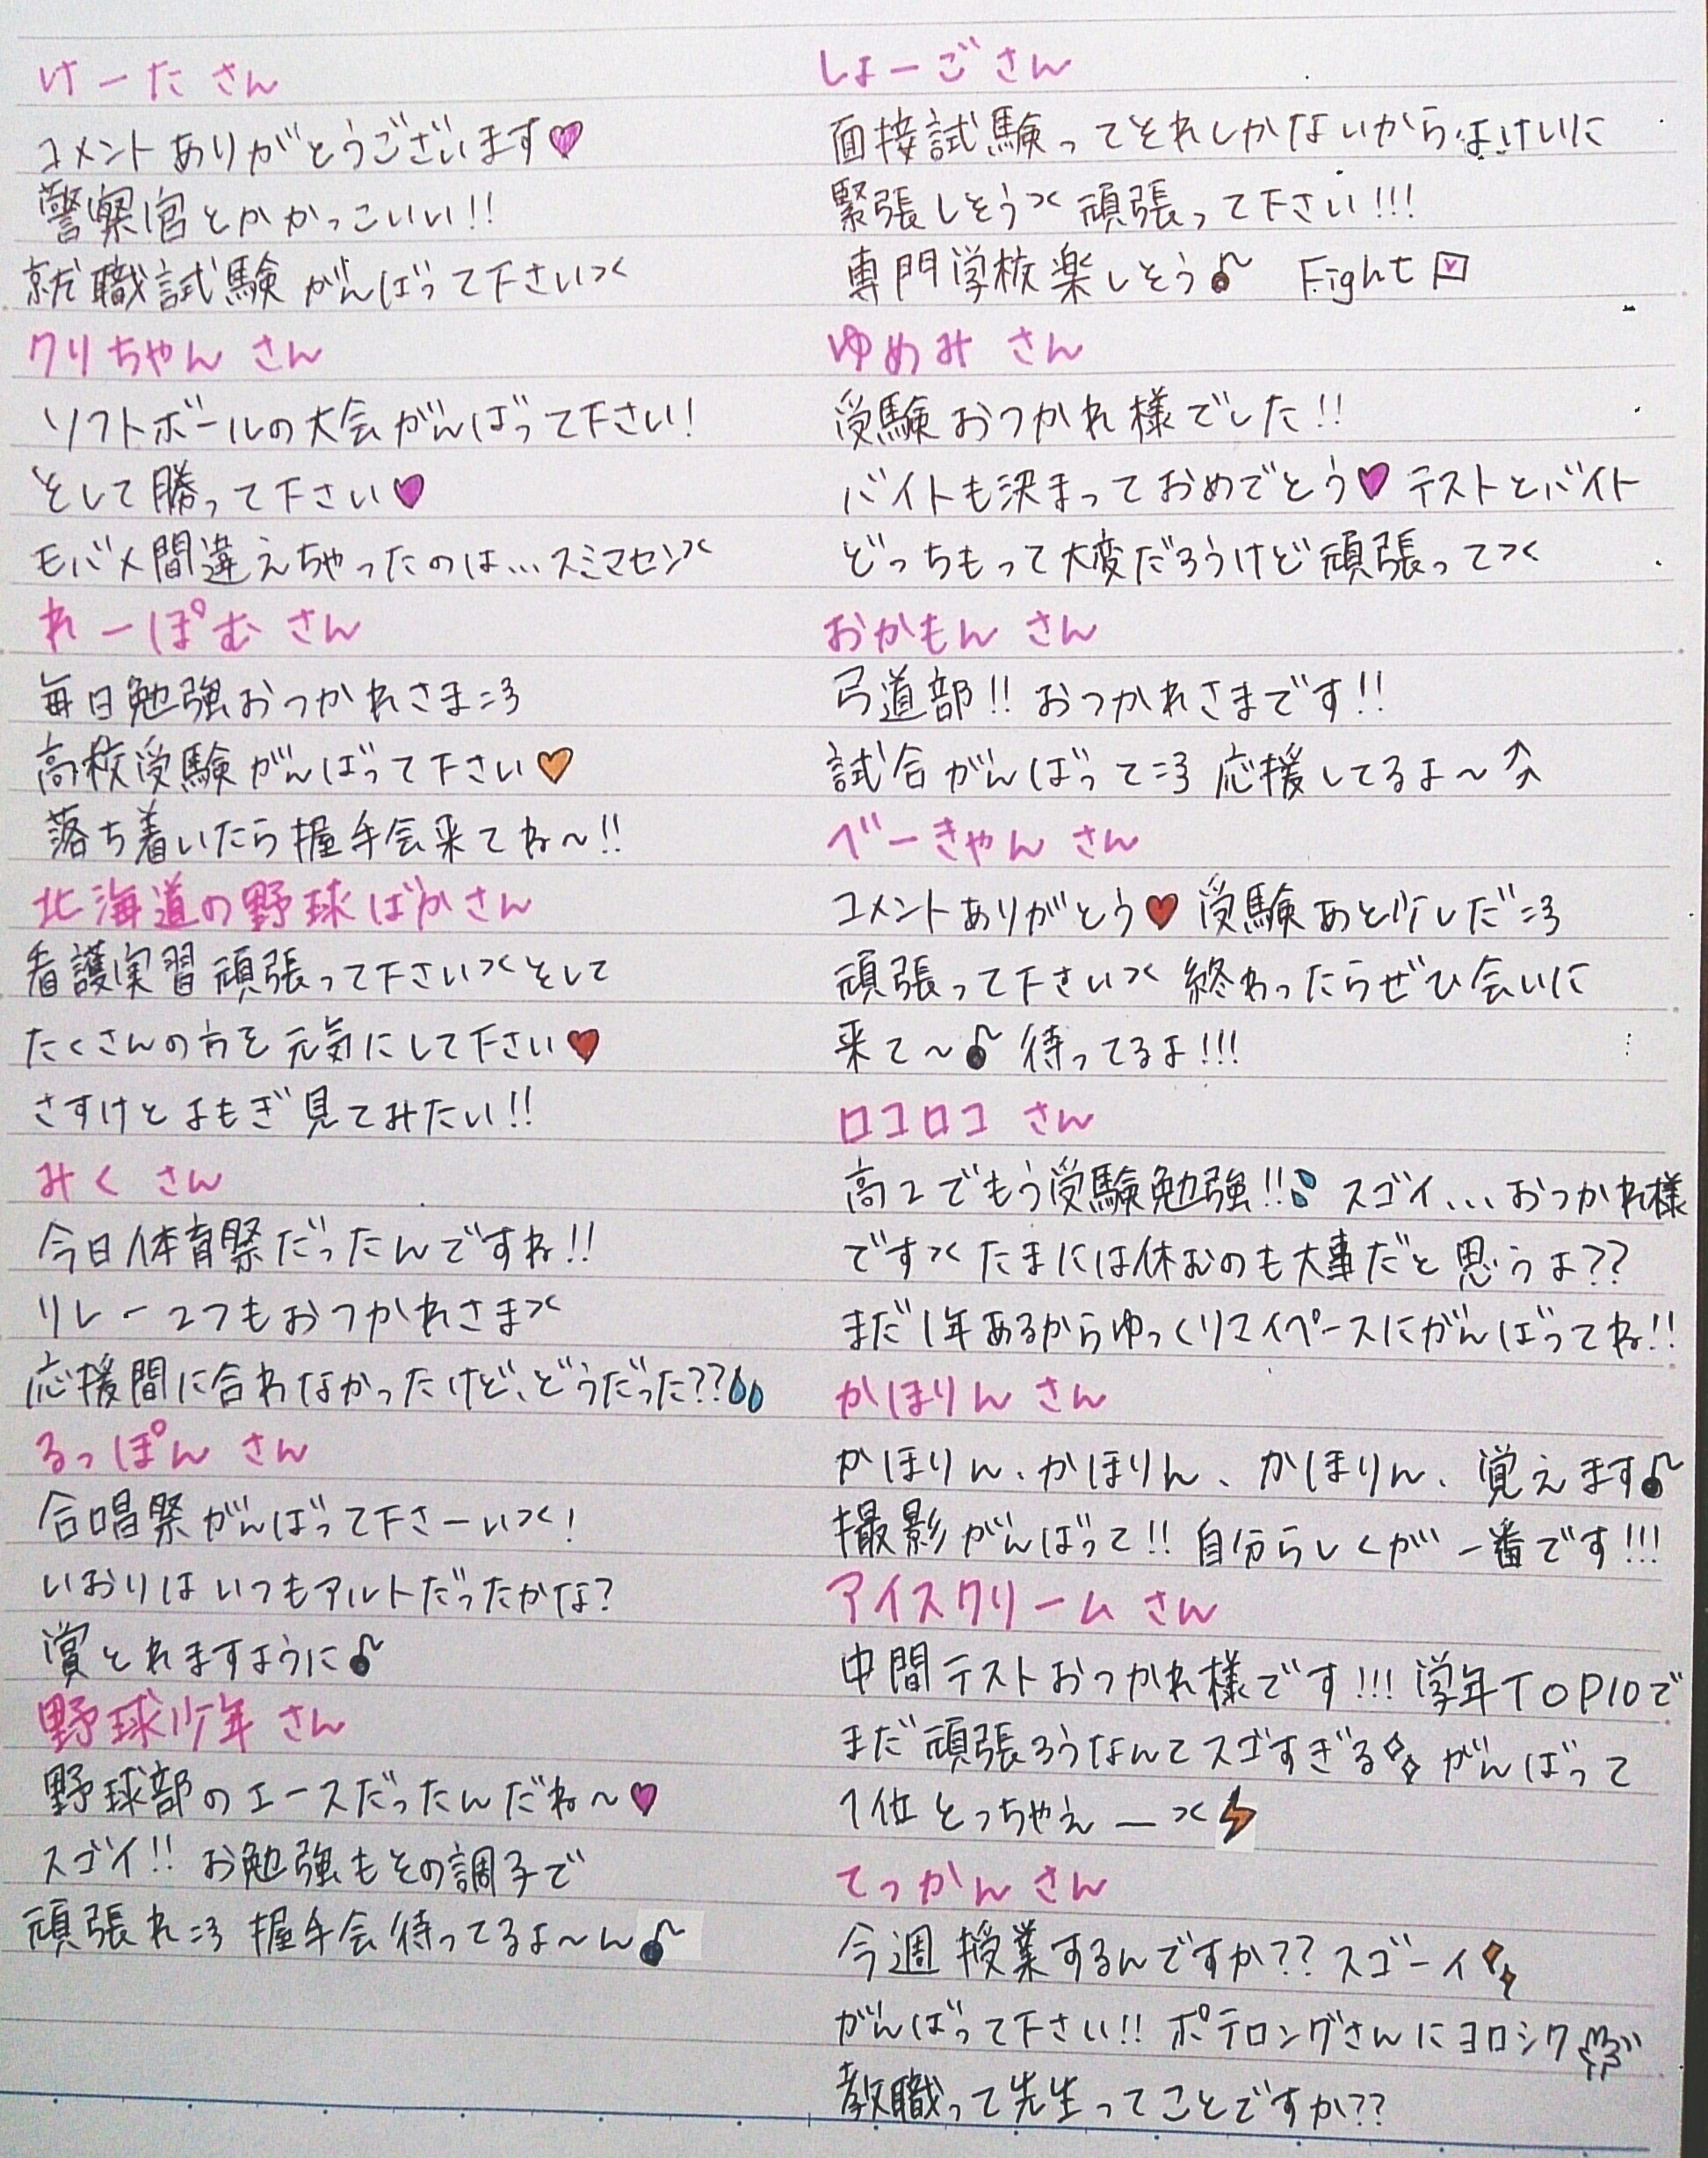 けーた さん
コメントありがとうございます♥
警察官とかかっこいい!!
就職試験がんばって下さい
クリちゃん さん
ソフトボールの大会がんばって下さい!
そして勝って下さい♥
モバメ間違えちゃったのは…スミマセン
れーぽむ さん
毎日勉強おつかれさま
高校受験がんばって下さい♥
落ち着いたら握手会来てね〜!!
北海道の野球ばかさん
看護実習頑張って下さい そして
たくさんの方を元気にして下さい♥
さすけとよもぎ見てみたい!!
みく さん
今日体育祭だったんですね!!
リレー2つもおつかれさま
応援間に合わなかったけど、どうだった??
るっぽん さん
合唱祭がんばって下さーい!
いおりはいつもアルトだったかな?
賞とれますように♪
野球少年 さん
野球部のエースだったんだね〜♥
スゴイ!! お勉強もその調子で
頑張れ 握手会待ってるよ〜ん♪
しょーごさん
面接試験ってそれしかないからよけいに
緊張しそう 頑張って下さい!!!
専門学校楽しそう♪ Fight
ゆめみ さん
受験おつかれ様でした!!
バイトも決まっておめでとう♥ テストとバイト
どっちもって大変だろうけど頑張って
おかもん さん
弓道部!! おつかれさまです!!
試合がんばって 応援してるよ〜
べーきゃん さん
コメントありがとう♥ 受験あと少しだ
頑張って下さい 終わったらぜひ会いに
来て〜♪ 待ってるよ!!!
ロコロコ さん
高2でもう受験勉強!! スゴイ... おつかれ様
です たまには休むのも大事だと思うよ??
まだ1年あるからゆっくりマイペースにがんばってね!!
かほりん さん
かほりん、かほりん、かほりん、覚えます♪
撮影がんばって!! 自分らしくが一番です!!!
アイスクリーム さん
中間テストおつかれ様です!!! 学年TOP10で
まだ頑張ろうなんてスゴすぎる がんばって
1位とっちゃえー
てっかん さん
今週授業するんですか?? スゴーイ
がんばって下さい!! ポテロングさんにヨロシク
教職って先生ってことですか??